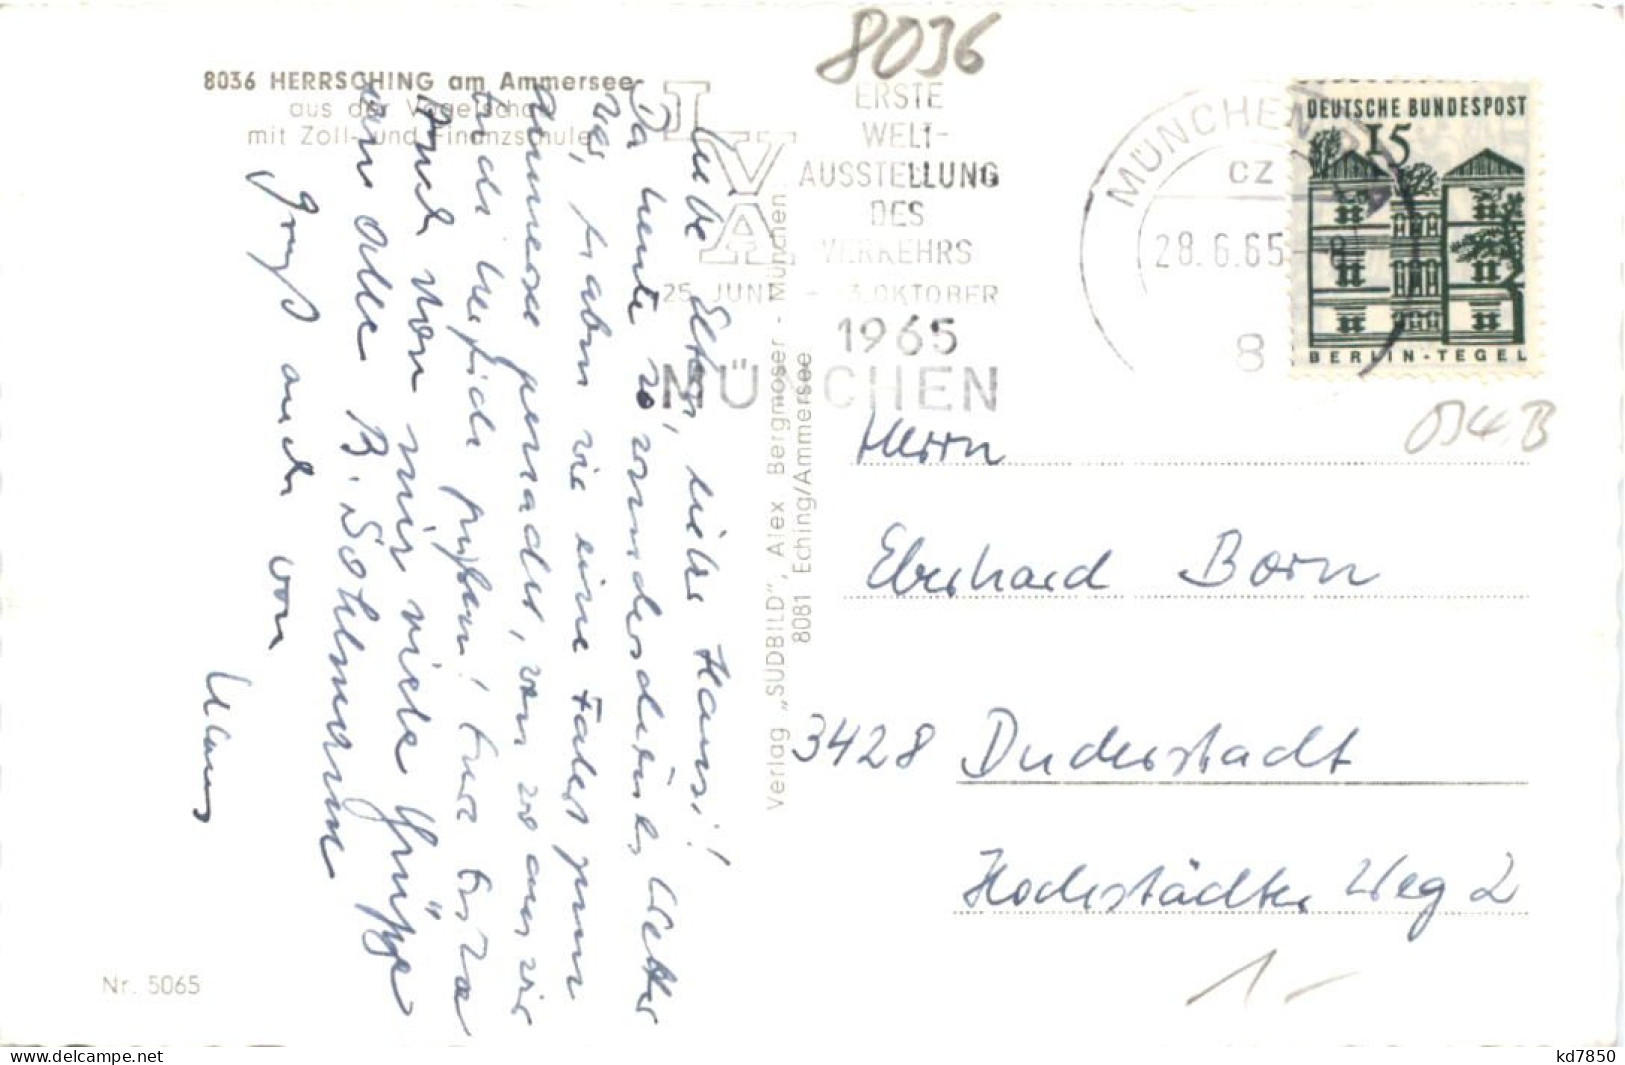 8036
8036 HERRSCHING am Ammersee
aus der Vogelschau
mit Zoll- und Finanzschule
IVA
ERSTE
WELT-
AUSSTELLUNG
DES
VERKEHRS
25. JUNI - 3. OKTOBER
1965
MÜNCHEN
MÜNCHEN
CZ
28.6.65-8
8
DEUTSCHE BUNDESPOST
15
BERLIN-TEGEL
034.B
Liebe Eltern, liebe Hansi!
Da heute so wunderschönes Wetter
ist, haben wie eine Fahrt zum
Ammersee gemacht, von wo aus wir
Euch herzlich grüßen! Eure Erika
Auch von mir viele Grüße
an alle B. Sohlmann
Gruß auch von
Klaus
Verlag „SÜDBILD", Alex Bergmoser - München
8081 Eching/Ammersee
Herrn
Eberhard Born
3428 Duderstadt
Hochstädter Weg 2
1.-
Nr. 5065
kd7850